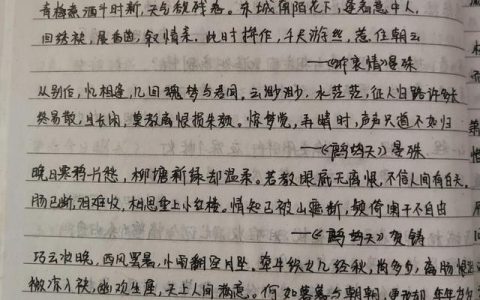 青梅煮酒斗时新,天气欲残春。东城南陌花下,逢着意中人.
回绣袂,展香茵,叙情亲。此时拼作,千尺游丝,惹住朝云
——《诉衷情》晏殊
从别后,忆相逢,几回魂梦与君同,云渺渺.水茫茫,征人归路许多长
终易散,且长闲,莫教离恨损朱颜。惊梦觉,弄晴时,声声只道不如归
——《鹧鸪天》晏殊
晚日寒鸦一片愁,柳塘新绿却温柔。若教眼底无离恨,不信人间有白头.
肠已断,泪难收,相思重上小红楼。情知已被山遮断,频倚阑干不自由
——《鹧鸪天》贺铸
巧云妆晚,西风罢暑,小雨翻空月坠,牵牛织女几经秋,尚多少,离肠恨泪
微凉入袂,幽欢生座,天上人间满意。何如暮暮与朝朝,更改却 年年岁